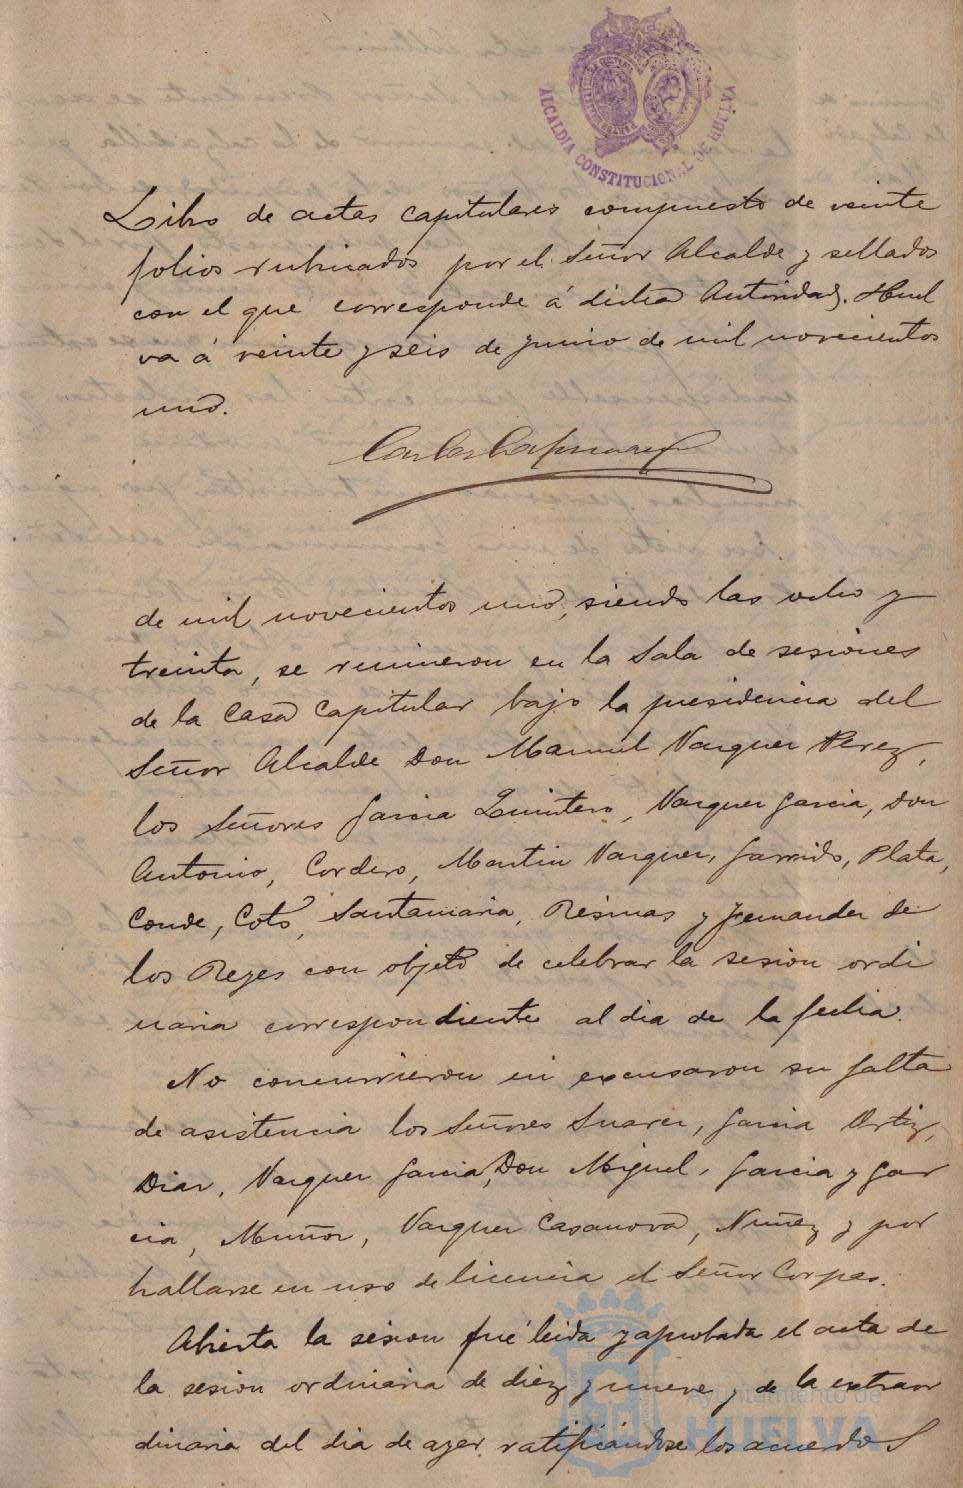 ALCALDIA CONSTITUCIONAL DE HUELVA
Libro de actas capitulares compuesto de veinte
folios rubricados por el Señor Alcalde y sellados
con el que corresponde á dicha Autoridad. Huel
va á veinte y seis de Junio de mil novecientos
uno.
de mil novecientos uno, siendo las ocho y
treinta, se reunieron en la Sala de sesiones
de la Casa Capitular bajo la presidencia del
Señor Alcalde Don Manuel Vazquez Perez,
los Señores Garcia Quintero, Vazquez Garcia, Don
Antonio, Cordero, Martin Vazquez, Garrido, Plata,
Conde, Coto, Santamaria, Resinas y Fernandez de
los Reyes con objeto de celebrar la sesion ordi
naria correspondiente al dia de la fecha.
No concurrieron ni excusaron su falta
de asistencia los Señores Suarez, Garcia Ortiz,
Diaz, Vazquez Garcia, Don Miguel, Garcia y Gar
cia, Muñoz, Vazquez Casanova, Nuñez y por
hallarse en uso de licencia el Señor Corpas.
Abierta la sesion fué leida y aprobada el acta de
la sesion ordinaria de diez y nueve y de la extraor
dinaria del dia de ayer, ratificandose los acuerdos
Ayuntamiento de
HUELVA